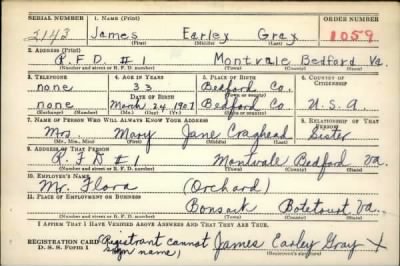 SERIAL NUMBER 1. NAME (Print) ORDER NUMBER
2143 James Earley Gray 1059
(First) (Middle) (Last)
2. ADDRESS (Print)
R.F.D. #1 Montvale Bedford Va.
(Number and street or R. F. D. number) (Town) (County) (State)
3. TELEPHONE 4. AGE IN YEARS 5. PLACE OF BIRTH 6. COUNTRY OF CITIZENSHIP
none 33 Bedford Co.
DATE OF BIRTH (Town or county)
none March 24, 1907 Bedford Co. U.S.A.
(Exchange) (Number) (Mo.) (Day) (Yr.) (State or country)
7. NAME OF PERSON WHO WILL ALWAYS KNOW YOUR ADDRESS 8. RELATIONSHIP OF THAT PERSON
Mrs. Mary Jane Craghead Sister
(Mr., Mrs., Miss) (First) (Middle) (Last)
9. ADDRESS OF THAT PERSON
R.F.D #1 Montvale Bedford Va.
(Number and street or R. F. D. number) (Town) (County) (State)
10. EMPLOYER'S NAME
Mr. Flora (Orchard)
11. PLACE OF EMPLOYMENT OR BUSINESS
Bonsack Botetourt Va.
(Number and street or R. F. D. number) (Town) (County) (State)
I AFFIRM THAT I HAVE VERIFIED ABOVE ANSWERS AND THAT THEY ARE TRUE.
REGISTRATION CARD (Registrant cannot James Earley Gray X
D. S. S. Form 1 sign name) (Registrant's signature)